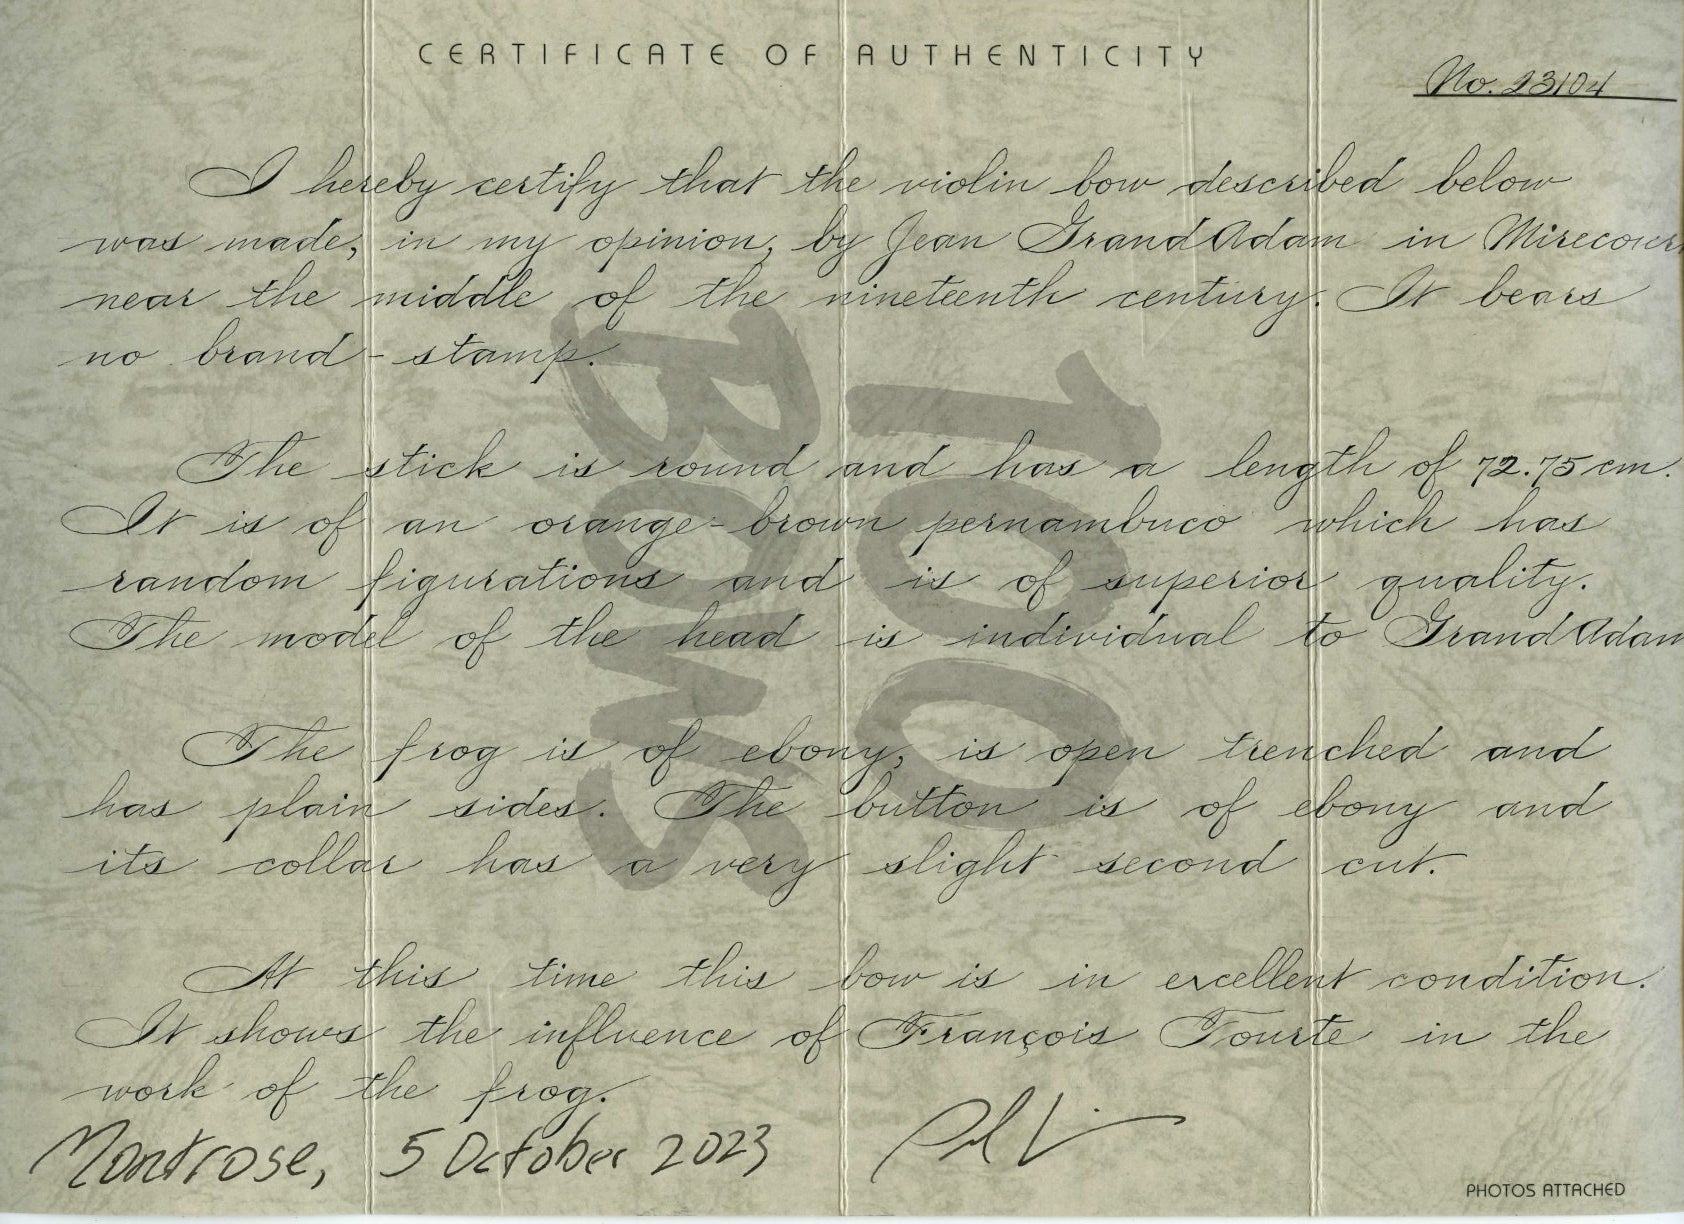 CERTIFICATE OF AUTHENTICITY
No. 23104
I hereby certify that the violin bow described below
was made, in my opinion, by Jean Grand Adam in Mirecourt
near the middle of the nineteenth century. It bears
no brand-stamp.
The stick is round and has a length of 72.75 cm.
It is of an orange-brown pernambuco which has
random figurations and is of superior quality.
The model of the head is individual to Grand Adam
The frog is of ebony, is open trenched and
has plain sides. The button is of ebony and
its collar has a very slight second cut.
At this time this bow is in excellent condition.
It shows the influence of François Tourte in the
work of the frog.
Montrose, 5 October 2023
PHOTOS ATTACHED
100
BOWS